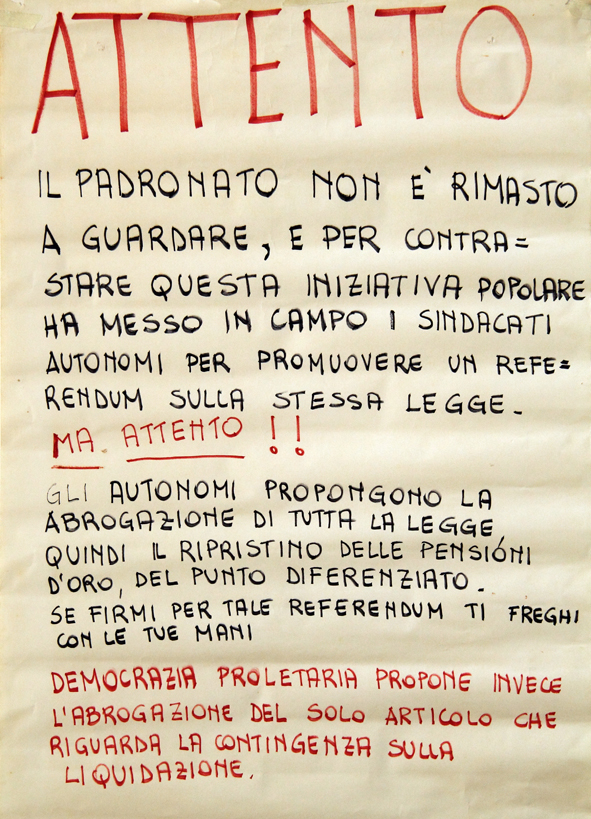 ATTENTO
IL PADRONATO NON E' RIMASTO
A GUARDARE, E PER CONTRA=
STARE QUESTA INIZIATIVA POPOLARE
HA MESSO IN CAMPO I SINDACATI
AUTONOMI PER PROMUOVERE UN REFE=
RENDUM SULLA STESSA LEGGE.
MA ATTENTO !!
GLI AUTONOMI PROPONGONO LA
ABROGAZIONE DI TUTTA LA LEGGE
QUINDI IL RIPRISTINO DELLE PENSIÓNI
D'ORO, DEL PUNTO DIFERENZIATO.
SE FIRMI PER TALE REFERENDUM TI FREGHI
CON LE TUE MANI
DEMOCRAZIA PROLETARIA PROPONE INVECE
L'ABROGAZIONE DEL SOLO ARTICOLO CHE
RIGUARDA LA CONTINGENZA SULLA
LIQUIDAZIONE.